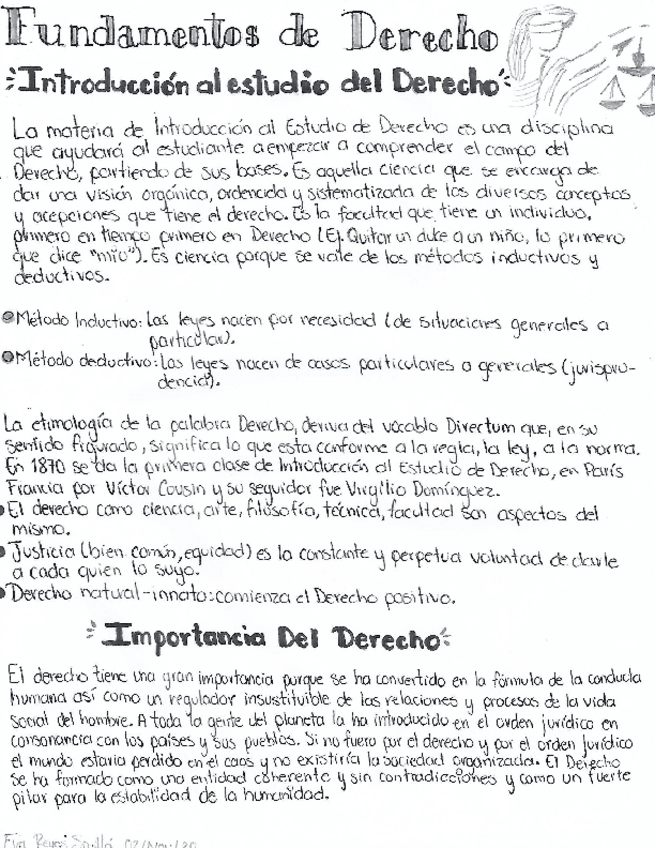 Fundamentos de Derecho
Introducción al estudio del Derecho
La materia de Introducción al Estudio de Derecho es una disciplina
que ayudará al estudiante a empezar a comprender el campo del
Derecho, partiendo de sus bases. Es aquella ciencia que se encarga de
dar una visión orgánica, ordenada y sistematizada de los diversos conceptos
y acepciones que tiene el derecho. Es la facultad que tiene un individuo,
primero en tiempo primero en Derecho (Ej. Quitar un dulce a un niño, lo primero
que dice "mío"). Es ciencia porque se vale de los métodos inductivos y
deductivos.
Método Inductivo: Las leyes nacen por necesidad (de situaciones generales a
particular).
Método deductivo: Las leyes nacen de casos particulares a generales (jurispru-
dencia).
La etimología de la palabra Derecho, deriva del vocablo Directum que, en su
sentido figurado, significa lo que esta conforme a la regla, la ley, a la norma.
En 1870 se da la primera clase de Introducción al Estudio de Derecho, en París
Francia por Víctor Cousin y su seguidor fue Virgilio Domínguez.
El derecho como ciencia, arte, filosofía, técnica, facultad son aspectos del
mismo.
Justicia (bien común, equidad) es la constante y perpetua voluntad de darle
a cada quien lo suyo.
Derecho natural-innato: comienza el Derecho positivo.
Importancia Del Derecho
El derecho tiene una gran importancia porque se ha convertido en la fórmula de la conducta
humana así como un regulador insustituible de las relaciones y procesos de la vida
social del hombre. A toda la gente del planeta la ha introducido en el orden jurídico en
consonancia con los países y sus pueblos. Si no fuera por el derecho y por el orden jurídico
el mundo estaría perdido en el caos y no existiría la sociedad organizada. El Derecho
se ha formado como una entidad coherente y sin contradicciones y como un fuerte
pilar para la estabilidad de la humanidad.
02/Nov/20